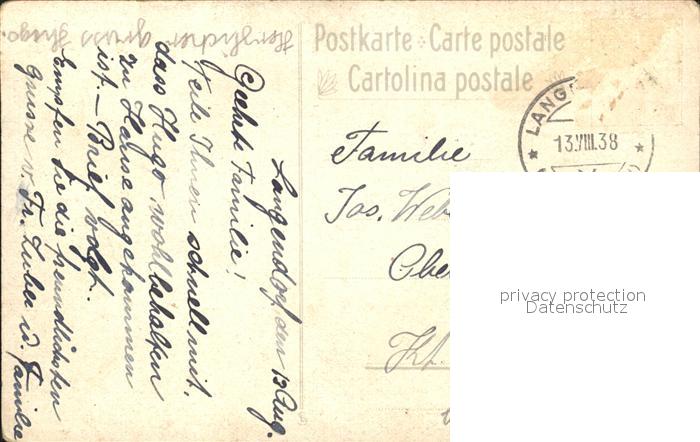 Postkarte Carte postale
Cartolina postale
LANG
13.VIII.38
Familie
Jos. Web
Obe
Kt.
privacy protection
Datenschutz
Herzlicher gruss Hugo.
Langendorf den 13 Aug.
Geehrte Familie!
Teile Ihnen schnell mit,
dass Hugo wohlbehalten
zu Hause angekommen
ist. – Brief folgt.
Empfen Sie die freundlichsten
Grüsse v. Fr. Zuber u. Familie